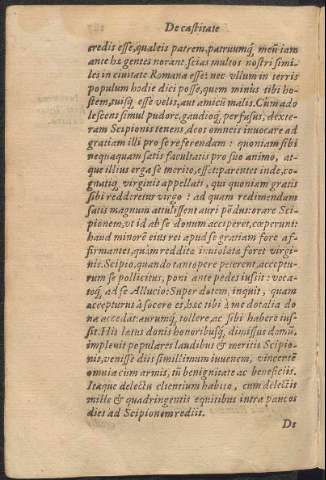 De castitate
credis esse, qualeis patrem, patruumq́; meũ iam
ante hæ gentes norant, scias multos nostri simi-
les in ciuitate Romana esse: nec vllum in terris
populum hodie dici posse, quem minus tibi ho-
stem, tuisq́; esse velis, aut amicũ malis. Cum ado
lescens simul pudore, gaudioq́; perfusus, dexte-
ram Scipionis tenens, deos omneis inuocare ad
gratiam illi pro se referendam: quoniam sibi
nequaquam satis facultatis pro suo animo, at-
que illius erga se merito, esset: parentes inde, co-
gnatiq́; virginis appellati, qui quoniam gratis
sibi redderetur virgo: ad quam redimendam
satis magnum attulissent auri põdus: orare Sci-
pionem, vt id ab se donum acciperet, cœperunt:
haud minorẽ eius rei apud se gratiam fore af-
firmantes, quàm redditæ inuiolatæ foret virgi-
nis. Scipio, quando tantopere peterent, acceptu-
rum se pollicitus, poni ante pedes iussit: voca-
toq́; ad se Allucio: Super dotem, inquit, quam
accepturus à socero es, hæc tibi à me dotalia do
na accedãt: aurumq́; tollere, ac sibi habere ius-
sit. His lætus donis honoribusq́; dimissus domũ,
impleuit populares laudibus & meritis Scipio-
nis, venisse diis simillimum iuuenem, vincentẽ
omnia cum armis, tũ benignitate ac beneficiis.
Itaque delectu clientium habito, cum delectis
mille & quadringentis equitibus intra paucos
dies ad Scipionem rediit.
De